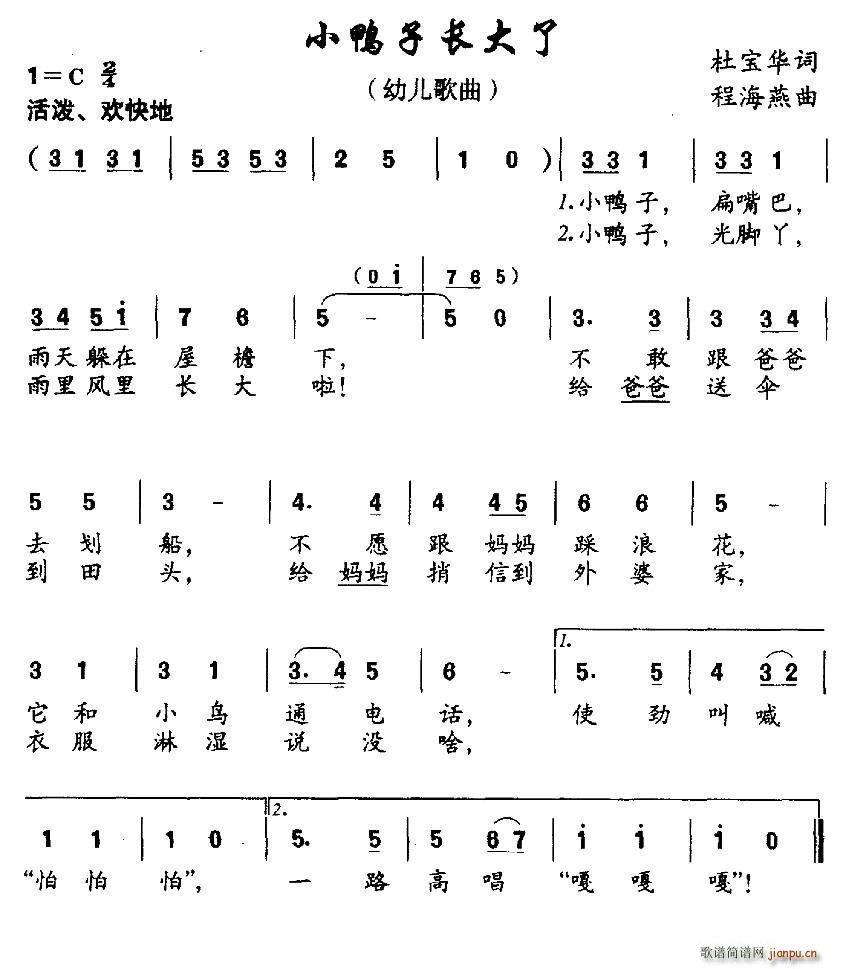 小鸭子长大了
1=C 2/4
（幼儿歌曲）
杜宝华词
程海燕曲
活泼、欢快地
( 3 1 3 1 | 5 3 5 3 | 2 5 | 1 0 ) | 3 3 1 | 3 3 1 |
1.小鸭子， 扁嘴巴，
2.小鸭子， 光脚丫，
( 0 i | 7 6 5 )
3 4 5 i | 7 6 | 5 - | 5 0 | 3. 3 | 3 3 4 |
雨天躲在屋檐下， 不敢跟爸爸
雨里风里长大啦！ 给爸爸送伞
5 5 | 3 - | 4. 4 | 4 4 5 | 6 6 | 5 - |
去划船， 不愿跟妈妈踩浪花，
到田头， 给妈妈捎信到外婆家，
3 1 | 3 1 | 3. 4 5 | 6 - | 1. 5. 5 | 4 3 2 |
它和小鸟通电话， 使劲叫喊
衣服淋湿说没啥，
1 1 | 1 0 | 2. 5. 5 | 5 6 7 | i i | i 0 ‖
“怕怕怕”， 一路高唱“嘎嘎嘎”！
歌谱简谱网 jianpu.cn